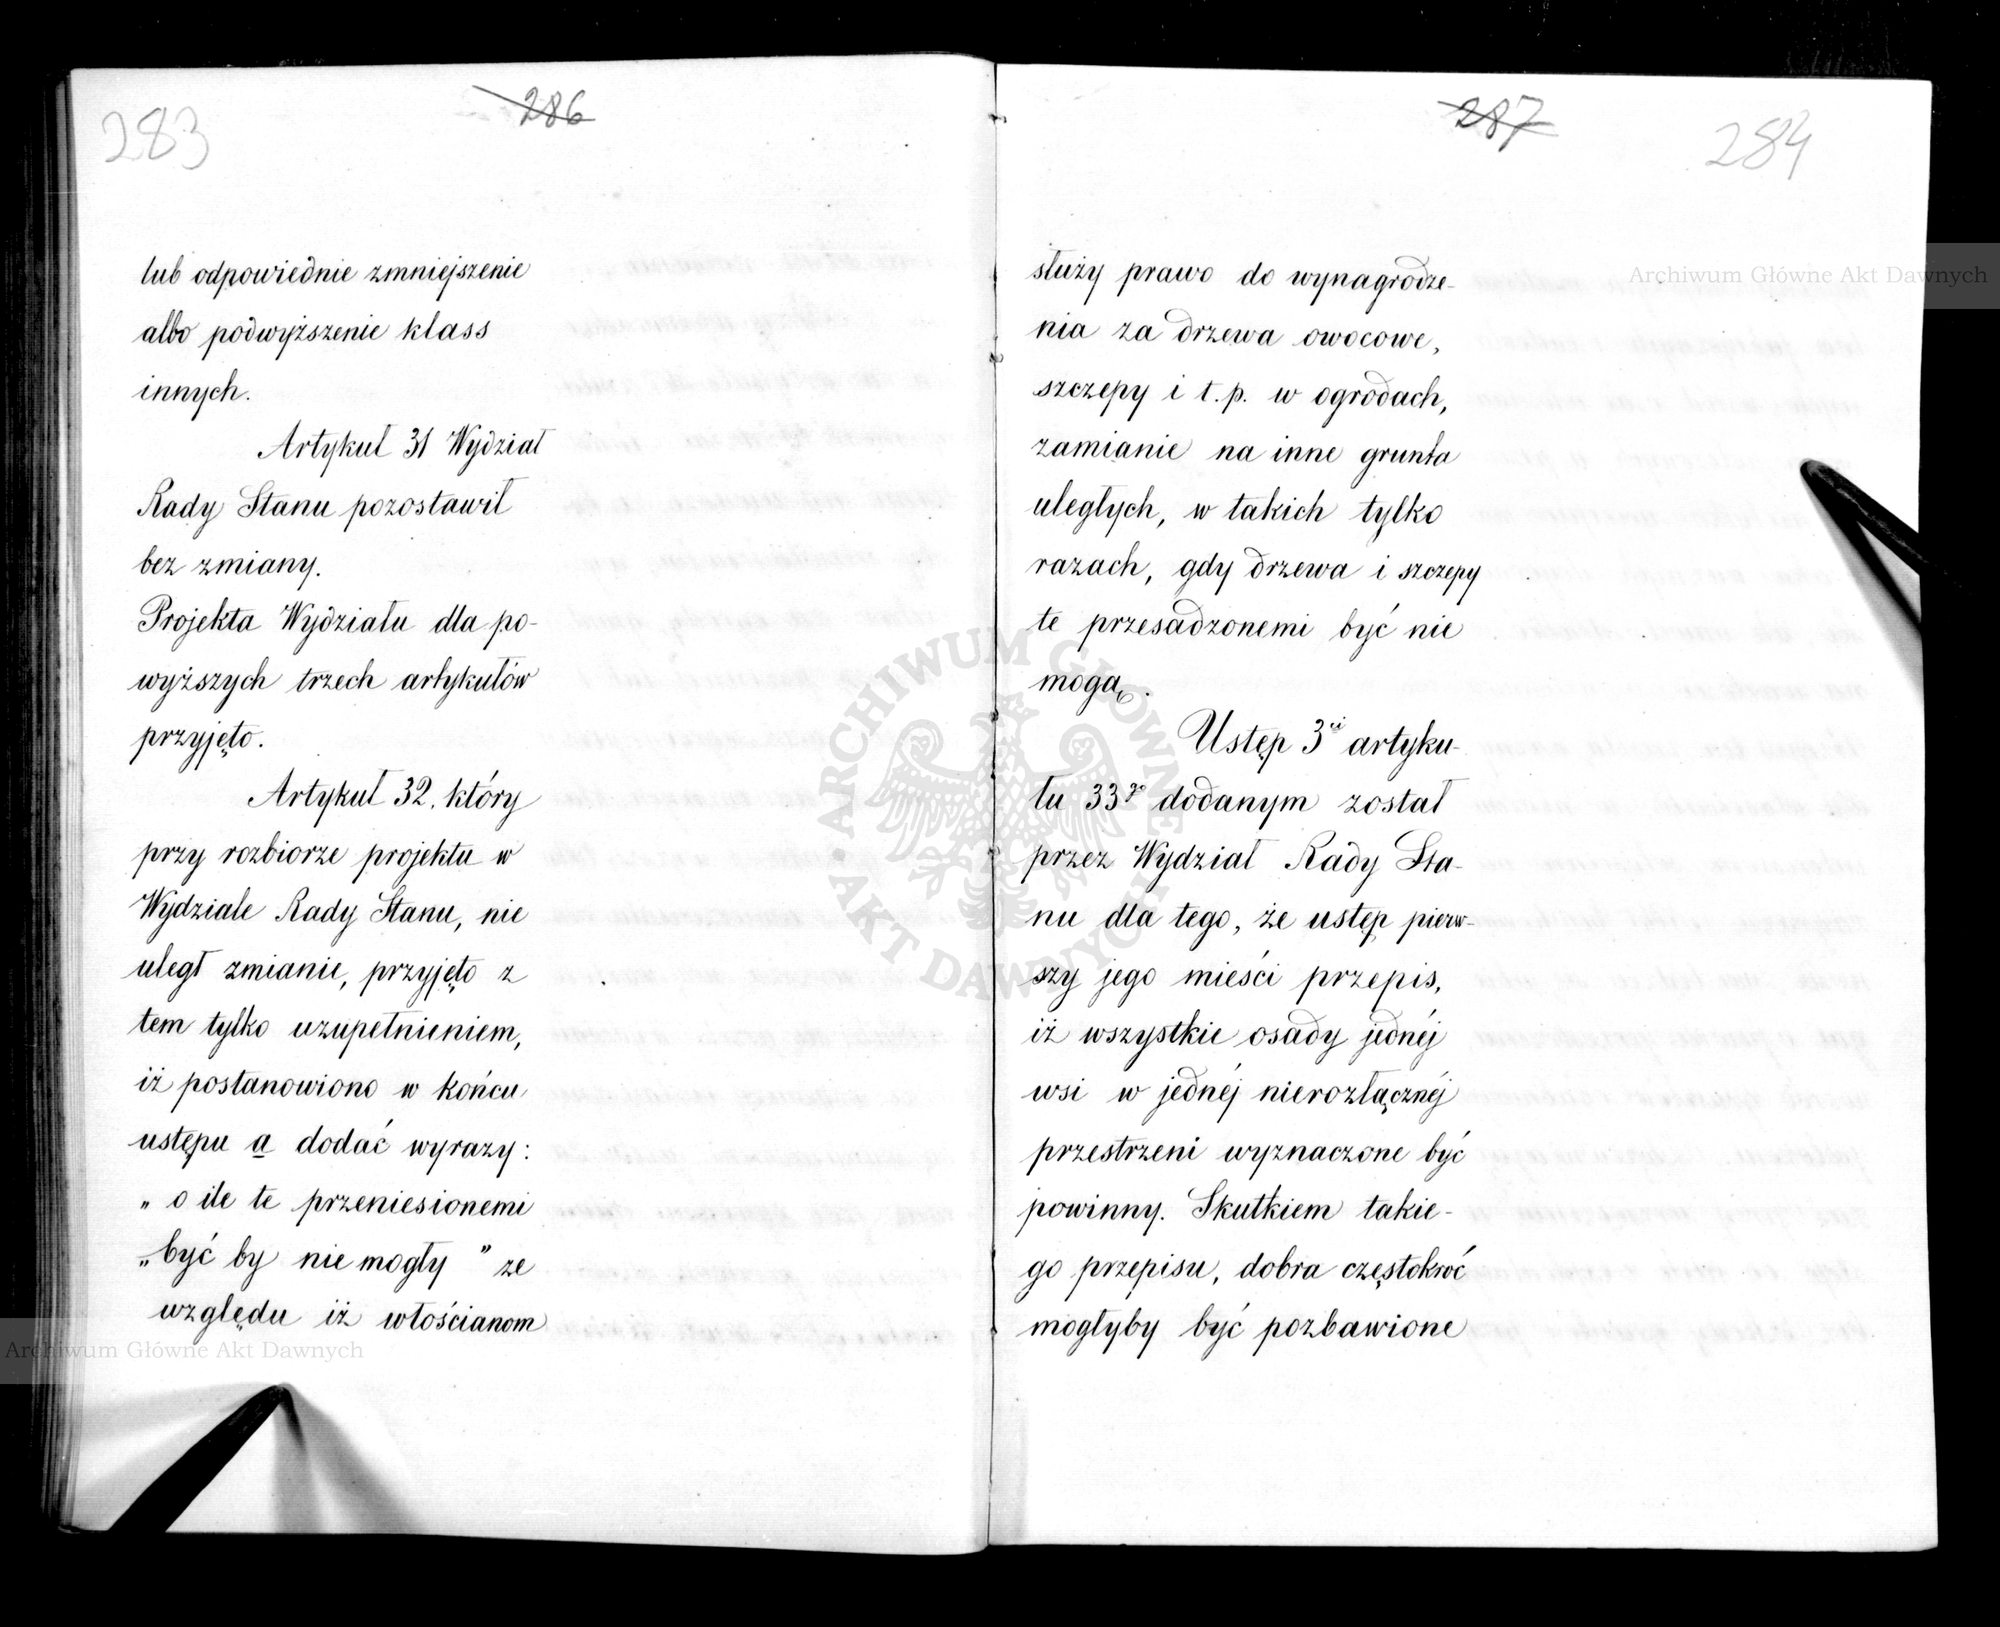 283
286
lub odpowiednie zmniejszenie
albo podwyższenie klass
innych.
Artykuł 31 Wydział
Rady Stanu pozostawił
bez zmiany.
Projekta Wydziału dla po-
wyższych trzech artykułów
przyjęto.
Artykuł 32. który
przy rozbiorze projektu w
Wydziale Rady Stanu, nie
uległ zmianie, przyjęto z
tem tylko uzupełnieniem,
iż postanowiono w końcu
ustępu a dodać wyrazy:
„ o ile te przeniesionemi
„być by nie mogły" ze
względu iż włościanom
Archiwum Główne Akt Dawnych
287
284
służy prawo do wynagrodze-
nia za drzewa owocowe,
szczepy i t.p. w ogrodach,
zamianie na inne grunta
uległych, w takich tylko
razach, gdy drzewa i szczepy
te przesadzonemi być nie
mogą.
Ustęp 3ci artyku-
łu 33go dodanym został
przez Wydział Rady Sta-
nu dla tego, że ustęp pierw-
szy jego mieści przepis,
iż wszystkie osady jednéj
wsi w jednéj nierozłącznéj
przestrzeni wyznaczone być
powinny. Skutkiem takie-
go przepisu, dobra częstokroć
mogłyby być pozbawione
Archiwum Główne Akt Dawnych
ARCHIWUM GŁÓWNE AKT DAWNYCH